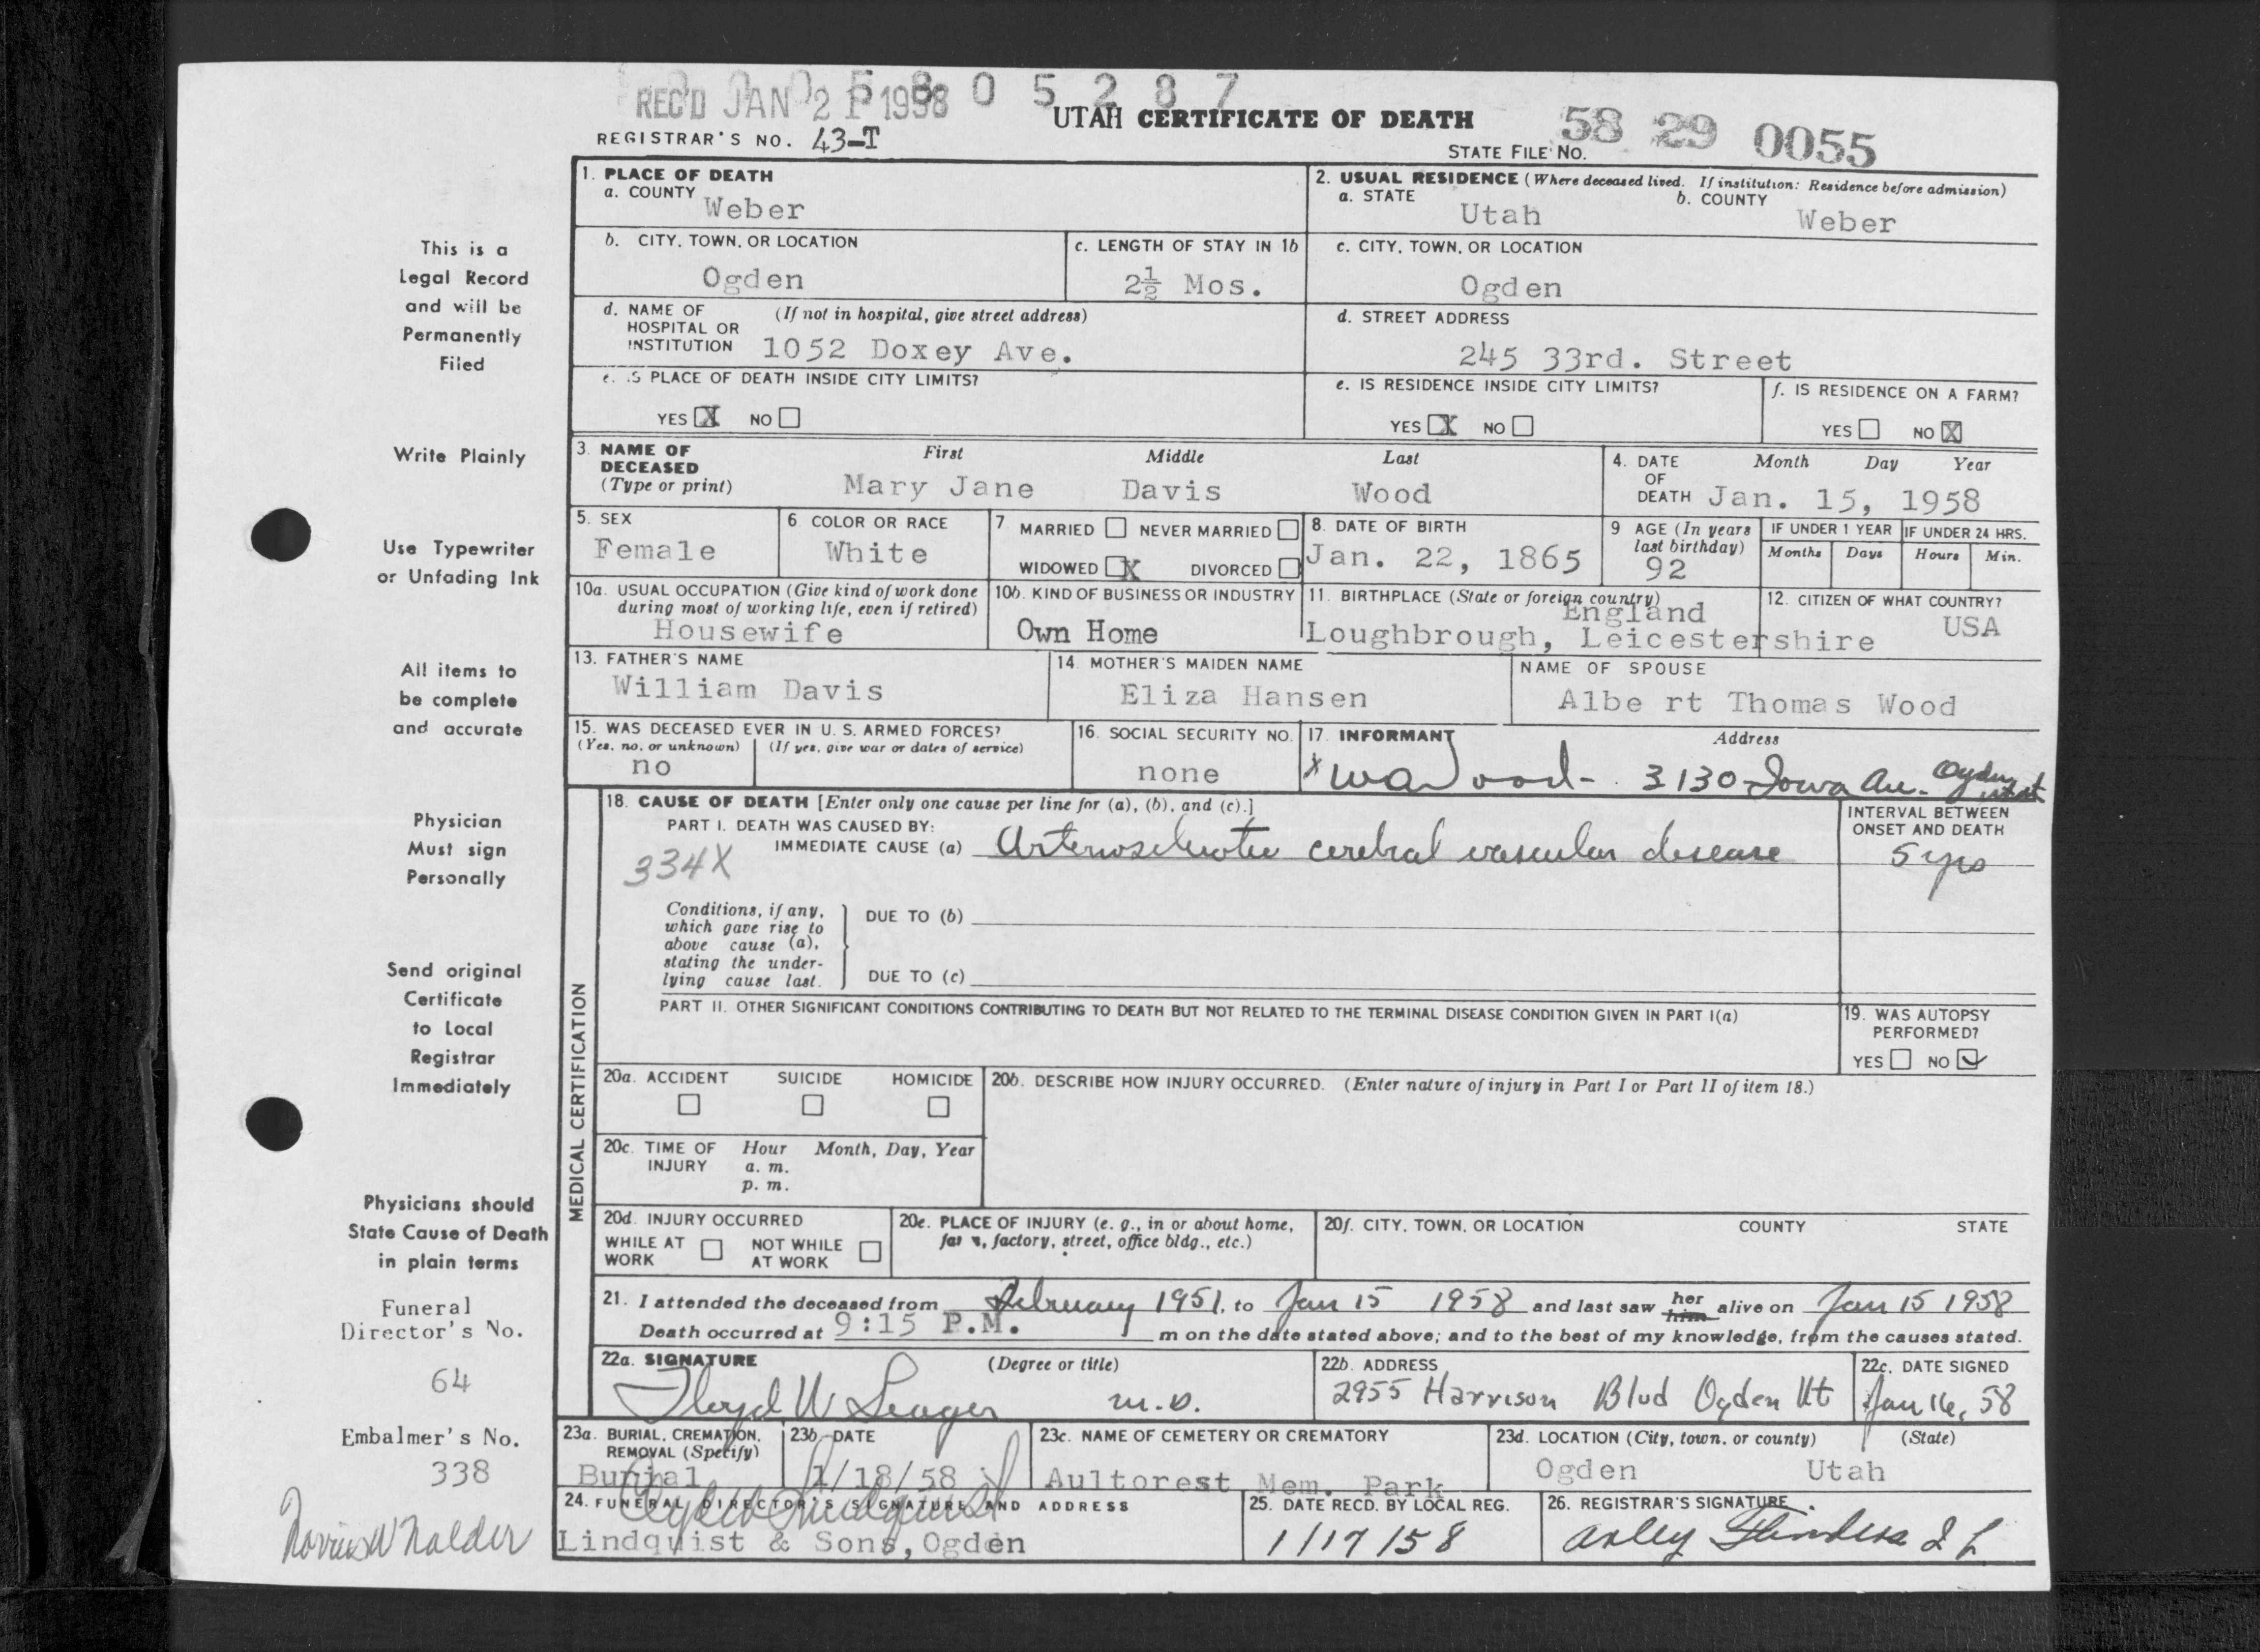 REC'D JAN 21 1958
0 5 2 8 7
UTAH CERTIFICATE OF DEATH
58 29 0055
REGISTRAR'S NO. 43-T
STATE FILE NO.
This is a
Legal Record
and will be
Permanently
Filed
Write Plainly
Use Typewriter
or Unfading Ink
All items to
be complete
and accurate
Physician
Must sign
Personally
Send original
Certificate
to Local
Registrar
Immediately
Physicians should
State Cause of Death
in plain terms
Funeral
Director's No.
64
Embalmer's No.
338
1. PLACE OF DEATH
a. COUNTY Weber
2. USUAL RESIDENCE (Where deceased lived. If institution: Residence before admission)
a. STATE Utah b. COUNTY Weber
b. CITY, TOWN, OR LOCATION
Ogden
c. LENGTH OF STAY IN 1b
2½ Mos.
c. CITY, TOWN, OR LOCATION
Ogden
d. NAME OF (If not in hospital, give street address)
HOSPITAL OR
INSTITUTION 1052 Doxey Ave.
d. STREET ADDRESS
245 33rd. Street
e. IS PLACE OF DEATH INSIDE CITY LIMITS?
YES X NO
e. IS RESIDENCE INSIDE CITY LIMITS?
YES X NO
f. IS RESIDENCE ON A FARM?
YES NO X
3. NAME OF First Middle Last
DECEASED
(Type or print) Mary Jane Davis Wood
4. DATE Month Day Year
OF
DEATH Jan. 15, 1958
5. SEX
Female
6. COLOR OR RACE
White
7 MARRIED NEVER MARRIED
WIDOWED X DIVORCED
8. DATE OF BIRTH
Jan. 22, 1865
9 AGE (In years
last birthday)
92
IF UNDER 1 YEAR IF UNDER 24 HRS.
Months Days Hours Min.
10a. USUAL OCCUPATION (Give kind of work done
during most of working life, even if retired)
Housewife
10b. KIND OF BUSINESS OR INDUSTRY
Own Home
11. BIRTHPLACE (State or foreign country)
England
Loughbrough, Leicestershire
12. CITIZEN OF WHAT COUNTRY?
USA
13. FATHER'S NAME
William Davis
14. MOTHER'S MAIDEN NAME
Eliza Hansen
NAME OF SPOUSE
Albe rt Thomas Wood
15. WAS DECEASED EVER IN U. S. ARMED FORCES?
(Yes, no, or unknown) (If yes, give war or dates of service)
no
16. SOCIAL SECURITY NO.
none
17. INFORMANT Address
x W A Wood - 3130 Iowa Ave. Ogden Utah
MEDICAL CERTIFICATION
18. CAUSE OF DEATH [Enter only one cause per line for (a), (b), and (c).]
PART I. DEATH WAS CAUSED BY:
IMMEDIATE CAUSE (a) Arteriosclerotic cerebral vascular disease
334X
INTERVAL BETWEEN
ONSET AND DEATH
5 yrs
Conditions, if any,
which gave rise to
above cause (a),
stating the under-
lying cause last.
DUE TO (b)
DUE TO (c)
PART II. OTHER SIGNIFICANT CONDITIONS CONTRIBUTING TO DEATH BUT NOT RELATED TO THE TERMINAL DISEASE CONDITION GIVEN IN PART I(a)
19. WAS AUTOPSY
PERFORMED?
YES NO ✓
20a. ACCIDENT SUICIDE HOMICIDE
20b. DESCRIBE HOW INJURY OCCURRED. (Enter nature of injury in Part I or Part II of item 18.)
20c. TIME OF Hour Month, Day, Year
INJURY a. m.
p. m.
20d. INJURY OCCURRED
WHILE AT NOT WHILE
WORK AT WORK
20e. PLACE OF INJURY (e. g., in or about home,
farm, factory, street, office bldg., etc.)
20f. CITY, TOWN, OR LOCATION COUNTY STATE
21. I attended the deceased from February 1951, to Jan 15 1958 and last saw her him alive on Jan 15 1958
Death occurred at 9:15 P.M. m on the date stated above; and to the best of my knowledge, from the causes stated.
22a. SIGNATURE (Degree or title)
Floyd W Seager M.D.
22b. ADDRESS
2955 Harrison Blvd Ogden Ut
22c. DATE SIGNED
Jan 16, 58
23a. BURIAL, CREMATION,
REMOVAL (Specify)
Burial
23b. DATE
1/18/58
23c. NAME OF CEMETERY OR CREMATORY
Aultorest Mem. Park
23d. LOCATION (City, town, or county) (State)
Ogden Utah
24. FUNERAL DIRECTOR'S SIGNATURE AND ADDRESS
Lindquist & Sons, Ogden
25. DATE RECD. BY LOCAL REG.
1/17/58
26. REGISTRAR'S SIGNATURE